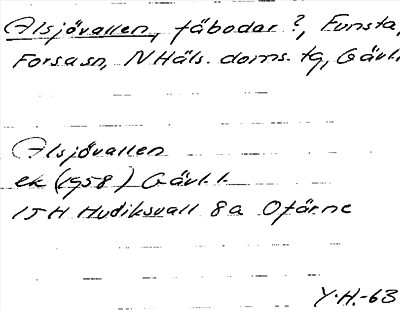 Alsjövallen, fäbodar?, Funsta,
Forsasn, N Häls. doms. tg, Gävl.
Alsjövallen
ek (1958) Gävl. l.
15H Hudiksvall 8a Ofärne
Y.H.-63